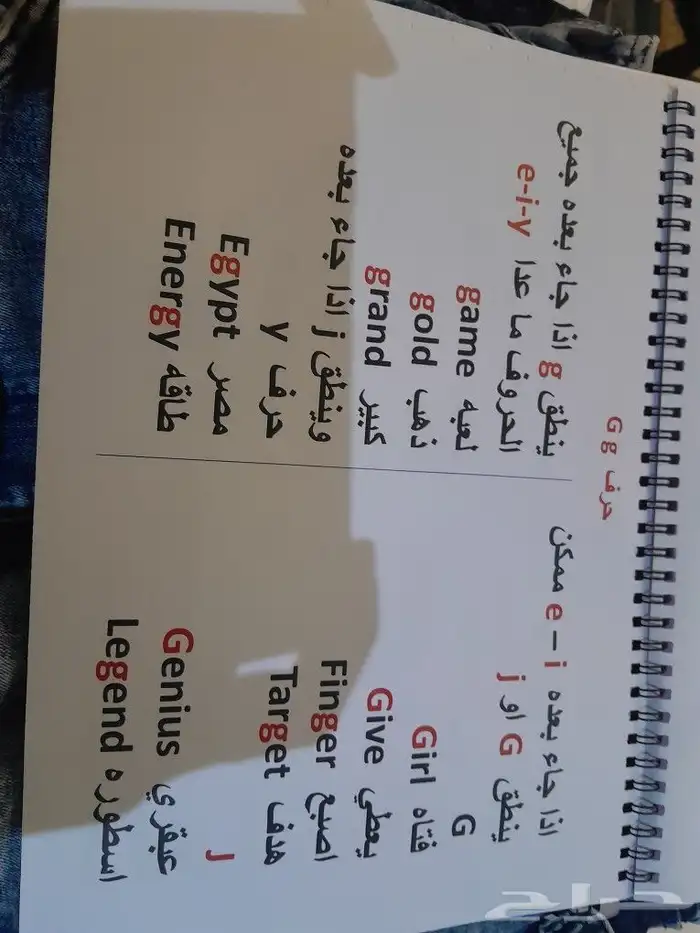 حرف G g
ينطق g اذا جاء بعده جميع
الحروف ما عدا e-i-y
game لعبه
gold ذهب
grand كبير
وينطق j اذا جاء بعده
حرف y
Egypt مصر
Energy طاقه
اذا جاء بعده e – i ممكن
ينطق G او j
G
Girl فتاه
Give يعطي
Finger اصبع
Target هدف
J
Genius عبقري
Legend اسطوره
حراج